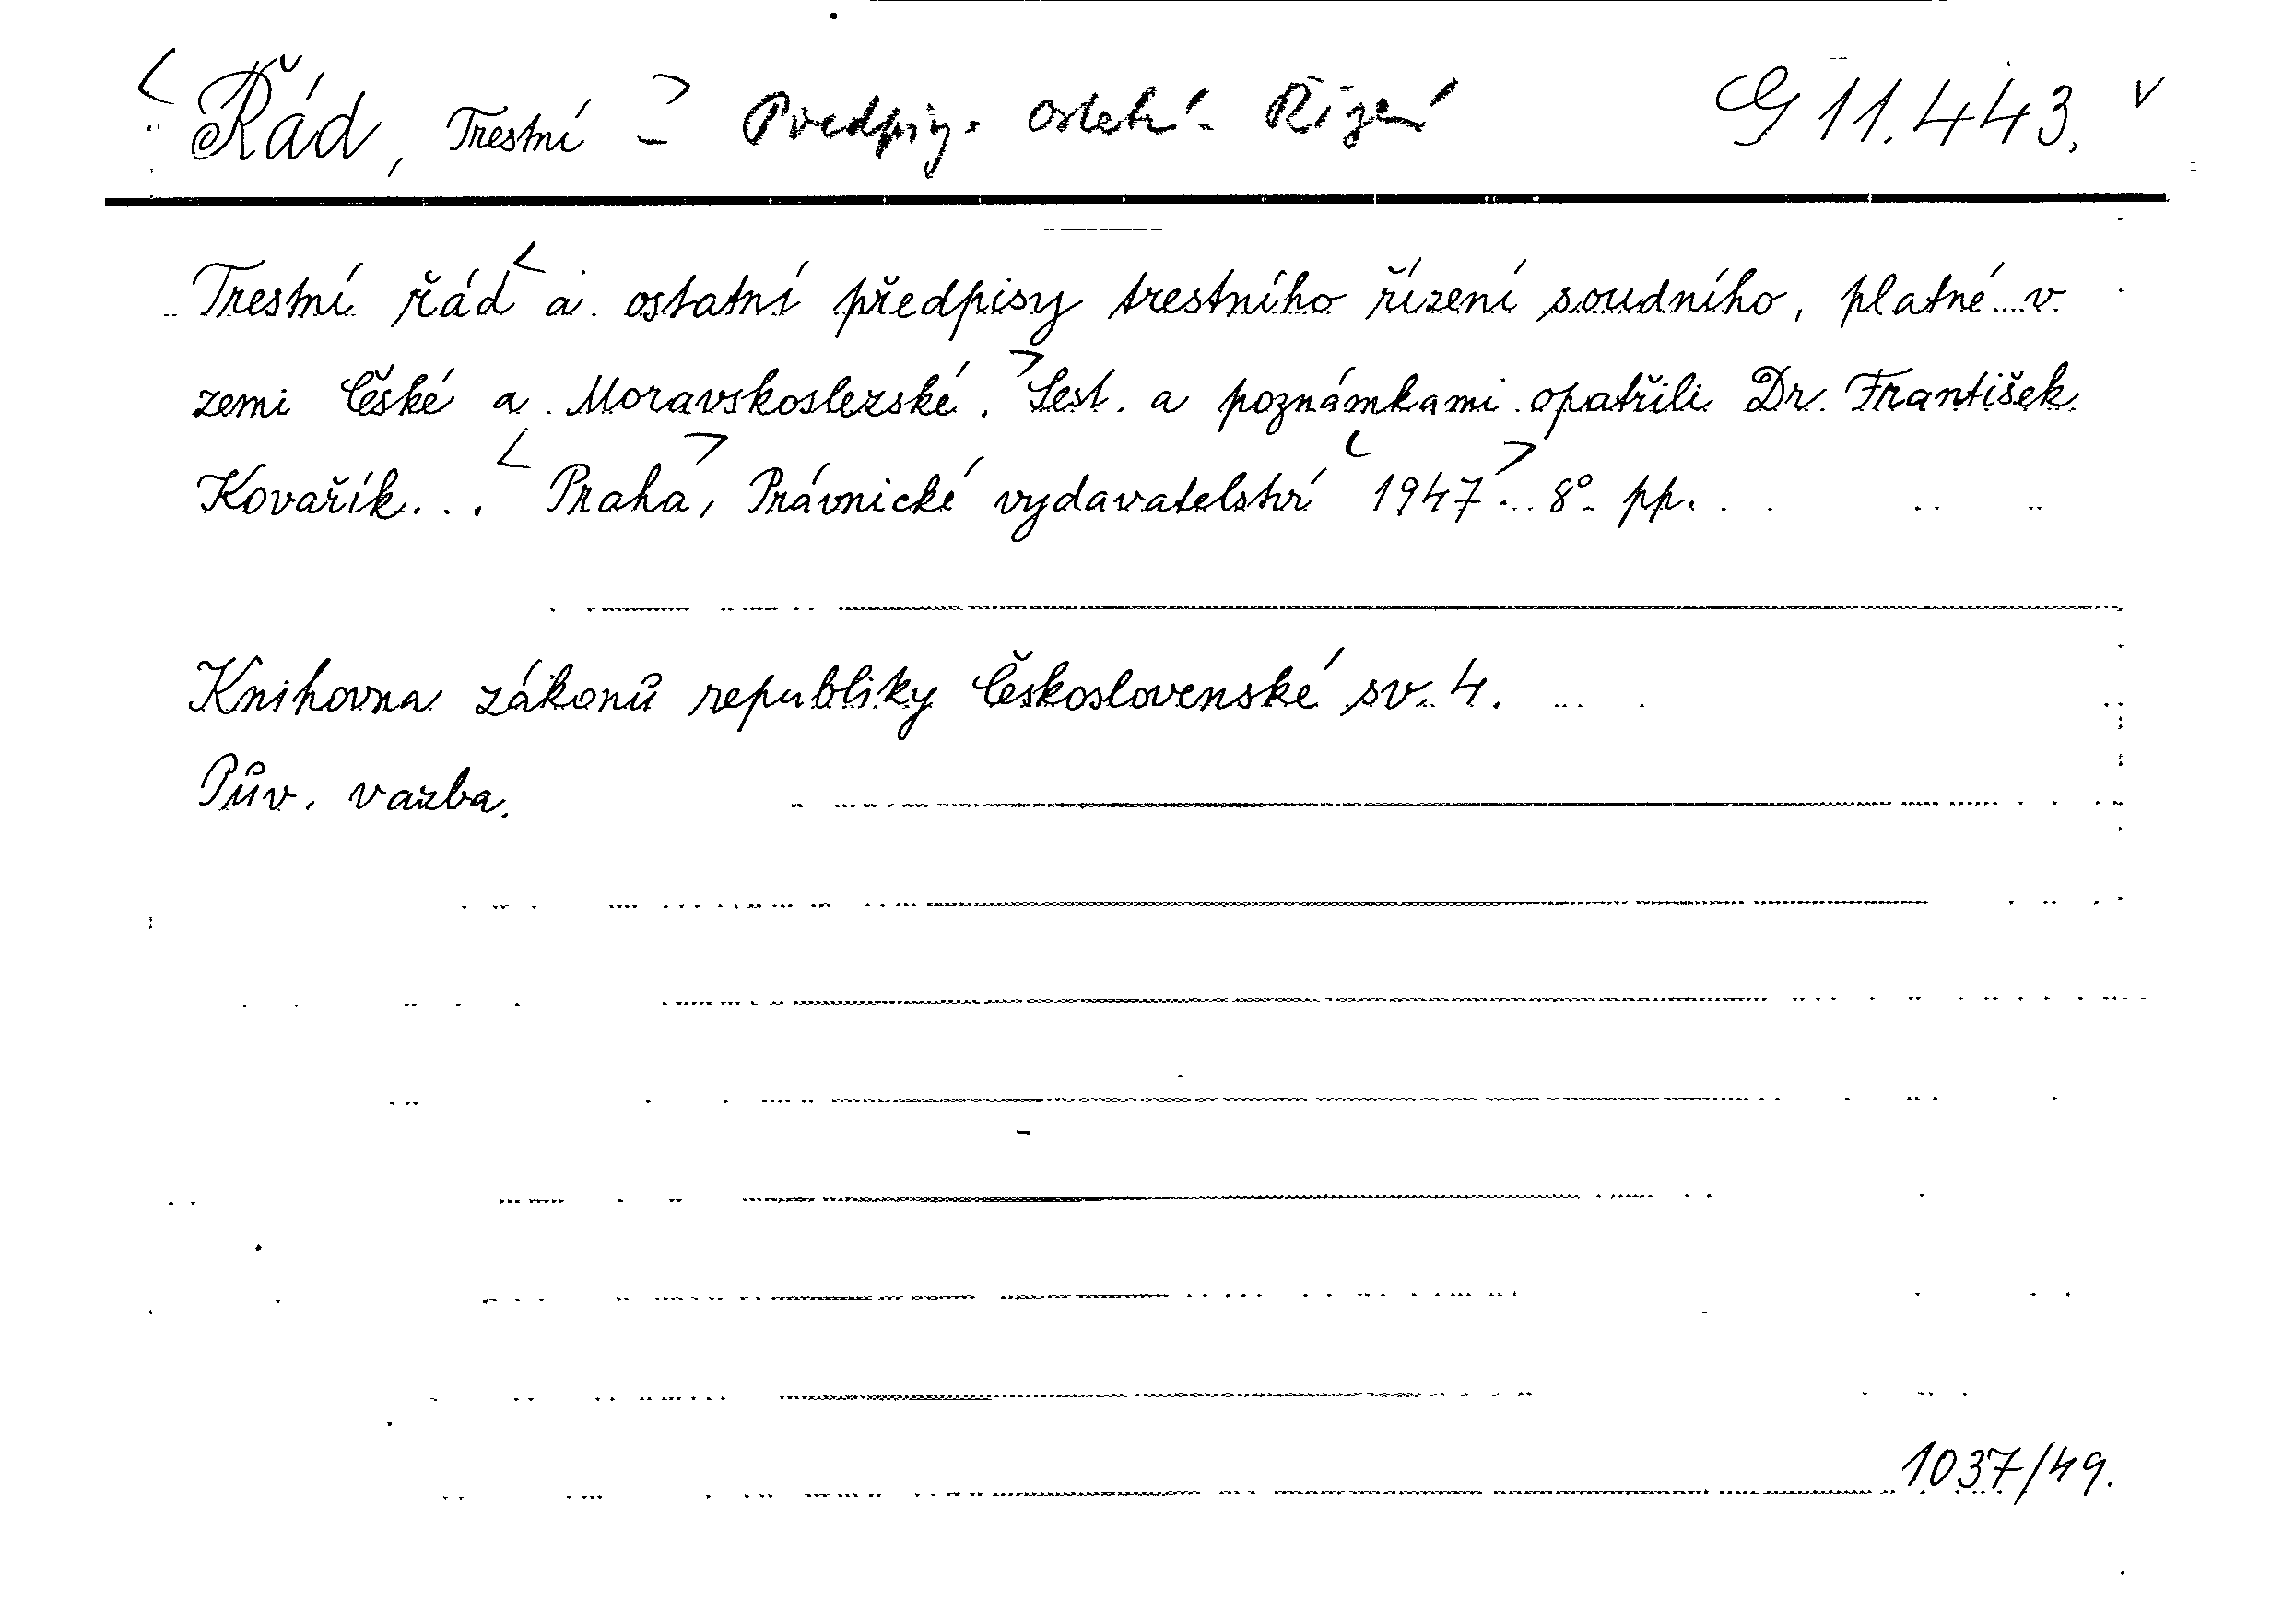 < Řád, Trestní > - Předpisy. Ostatní - Řízení G 11.443. v
Trestní řád < a ostatní předpisy trestního řízení soudního, platné v
zemi České a Moravskoslezské. > Sest. a poznámkami opatřili Dr. František
Kovařík... < Praha >, Právnické vydavatelství < 1947 >. 8° pp.
Knihovna zákonů republiky Československé sv. 4.
Pův. vazba.
1037/49.